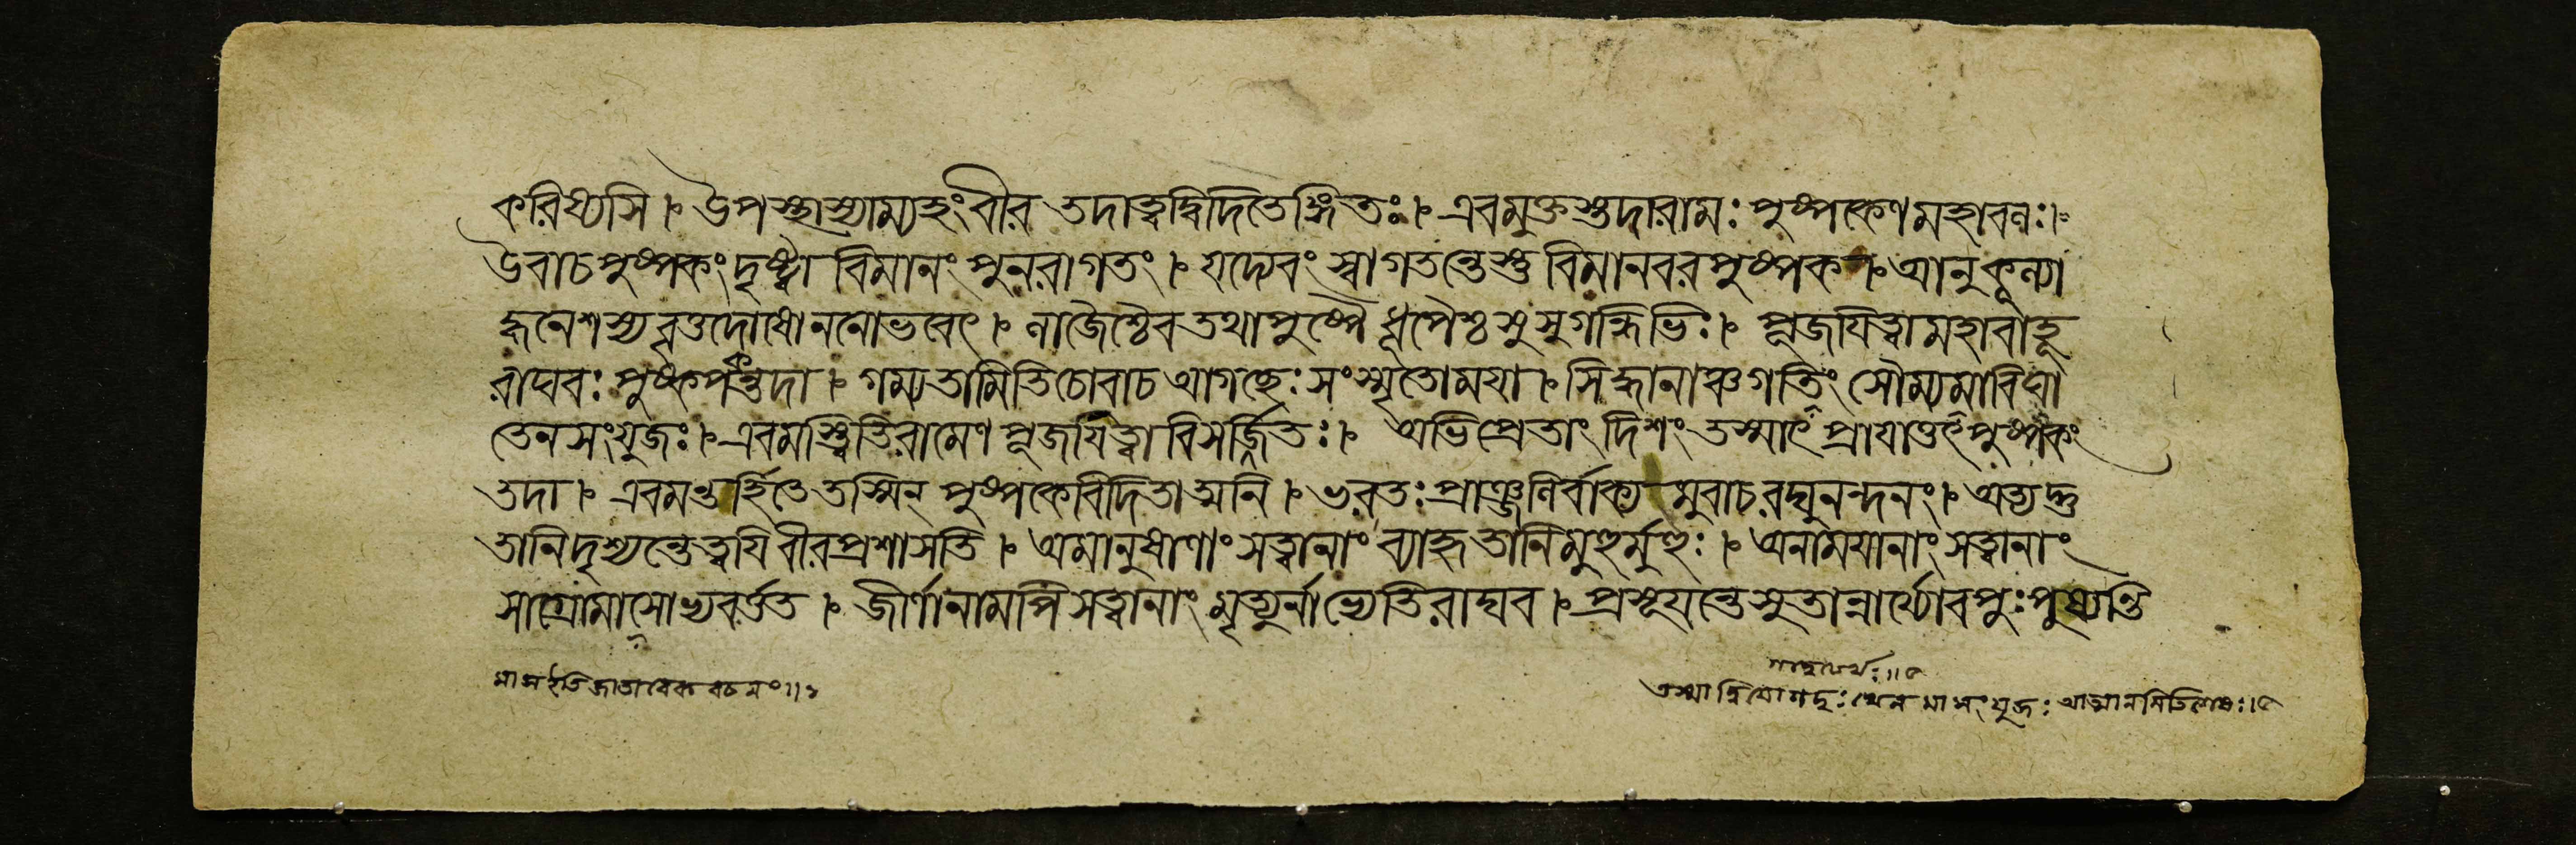 করিষ্যসি।৮ উপস্থাস্যাম্যহংবীর তদাত্বদ্বিদিতেঙ্গিতঃ।৮ এবমুক্তস্তুদারামঃ পুষ্পকেণমহাবলঃ।৮
উবাচপুষ্পকংদৃষ্ট্বা বিমানং পুনরাগতং।৮ যদ্যেবং স্বাগতন্তেস্তু বিমানবরপুষ্পক।৮ আনুকূল্যা
দ্ধনেশস্যবৃত্তদোষোননোভবেৎ।৮ লাজৈশ্চৈবতথাপুষ্পৈ র্ধূপৈশ্চসুসুগন্ধিভিঃ।৮ পূজযিত্বামহাবাহূ
রাঘবঃ পুষ্পকন্তদা।৮ গম্যতামিতিচোবাচ আগচ্ছেঃ সংস্মৃতোমযা।৮ সিদ্ধানাঞ্চগতিং সৌম্যমাবিষা
তেনসংযুজঃ।৮ এবমস্ত্বিতিরামেণ পূজযিত্বা বিসর্জ্জিতঃ।৮ অভিপ্রেতাং দিশং তস্মাৎ প্রাযাত্তৎপুষ্পকং
তদা।৮ এবমন্তর্হিতে তস্মিন্ পুষ্পকেবিদিতাত্মনি।৮ ভরতঃ প্রাঞ্জলির্বাক্য মুবাচরঘুনন্দনং।৮ অত্যদ্ভু
তানিদৃশ্যন্তেত্বযি বীরপ্রশাসতি।৮ অমানুষাণাং সত্বানাং ব্যাহৃতানিমুহুর্মুহুঃ।৮ অনামযানাং সত্বানাং
সাগ্রোমাসোপ্যবর্ত্তত।৮ জীর্ণানামপি সত্বানাং মৃত্যুর্নাভ্যেতিরাঘব।৮ প্রসূযন্তেসুতান্নার্যোবপুঃ পুষ্যন্তি
মাসইতিজাতাবেকবচনং॥১
তস্মাদ্বিযোগদুঃখেন মাসংযুজঃ আত্মানমিতিশেষঃ।৫